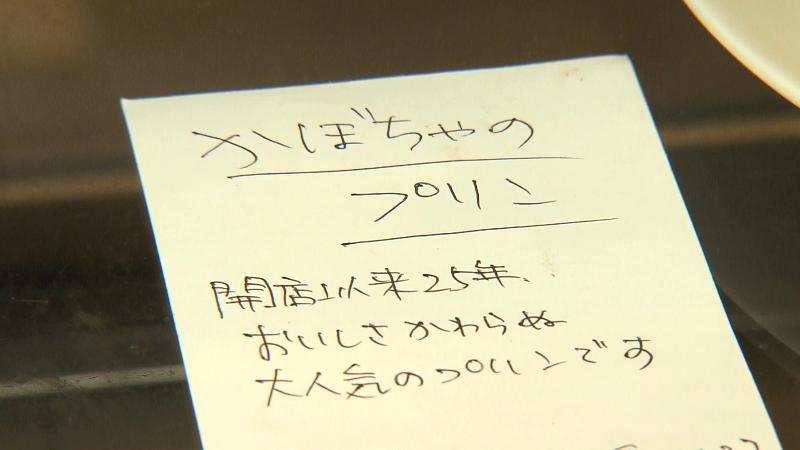 かぼちゃの
プリン
開店以来25年、
おいしさかわらぬ
大人気のプリンです